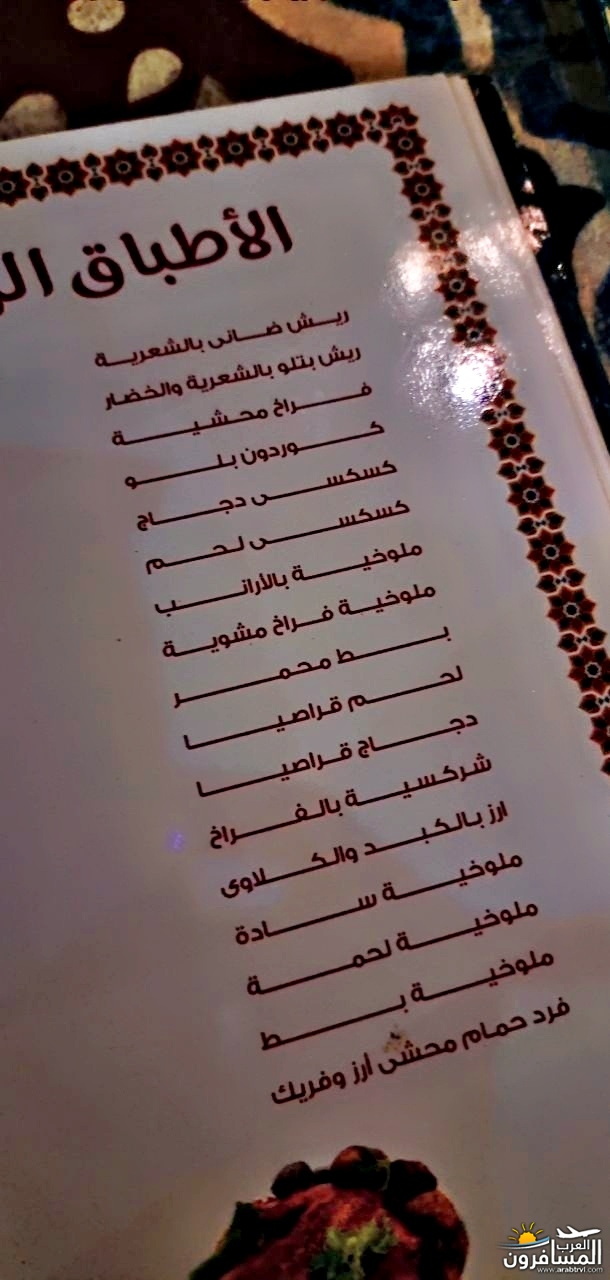 الأطباق الر
ريش ضانى بالشعرية
ريش بتلو بالشعرية والخضار
فراخ محشية
كوردون بلو
كسكسى دجاج
كسكسى لحم
ملوخية بالأرانب
ملوخية فراخ مشوية
بط محمر
لحم قراصيا
دجاج قراصيا
شركسية بالفراخ
ارز بالكبد والكلاوى
ملوخية سادة
ملوخية لحمة
ملوخية بط
فرد حمام محشى ارز وفريك
العرب
المسافرون
www.arabtrvl.com